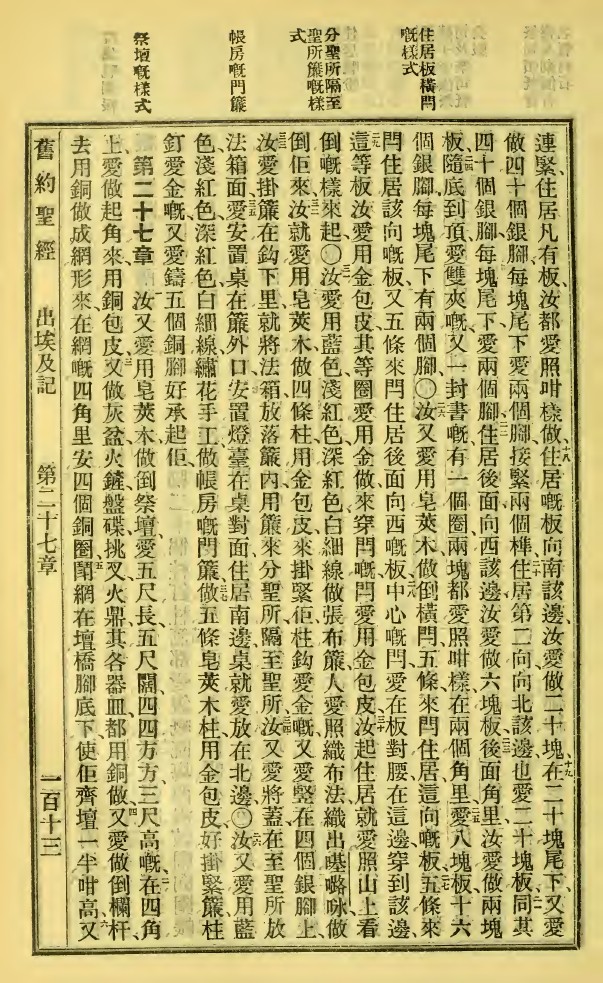 住居板橫閂
嘅樣式
分聖所隔至
聖所簾嘅樣
式
帳房嘅門簾
祭壇嘅樣式
連緊、住居凡有板、汝都愛照咁樣做、十八住居嘅板、向南該邊、汝愛做二十塊、十九在二十塊尾下、又愛
做四十個銀腳、每塊尾下愛兩個腳、接緊兩個榫、二十住居第二向、向北該邊、也愛二十塊板、二一同其
四十個銀腳、每塊尾下、愛兩個腳、二二住居後面向西該邊、汝愛做六塊板、二三後面角里、汝愛做兩塊
板、二四隨底到頂、愛雙夾嘅、又一封書嘅、有一個圈、兩塊都愛照咁樣、在兩個角里、二五愛八塊板、十六
個銀腳、每塊尾下有兩個腳、〇二六汝又愛用皂莢木做倒橫閂、五條來閂住居這向嘅板、二七五條來
閂住居該向嘅板、又五條來閂住居後面向西嘅板、二八中心嘅閂、愛在板對腰、在這邊穿到該邊、
二九這等板汝愛用金包皮、其等圈愛用金做來穿閂嘅、閂愛用金包皮、三十汝起住居、就愛照山上看
倒嘅樣來起、〇三一汝愛用藍色淺紅色深紅色白細線、做張布簾、人愛照織布法織出㗲嚕咏、做
倒佢來、三二汝就愛用皂莢木做四條柱、用金包皮、來掛緊佢、柱鈎愛金嘅、又愛竪在四個銀腳上、
三三汝愛掛簾在鈎下里、就將法箱放落簾內、用簾來分聖所隔至聖所、三四汝又愛將蓋在至聖所放
法箱面、三五愛安置桌在簾外口、安置燈臺在桌對面、住居南邊、桌就愛放在北邊、〇三六汝又愛用藍
色淺紅色深紅色白細線、繡花手工、做帳房嘅門簾、三七做五條皂莢木柱、用金包皮、好掛緊簾、柱
釘愛金嘅、又愛鑄五個銅腳、好承起佢、
第二十七章 汝又愛用皂莢木做倒祭壇、愛五尺長、五尺闊、四四方方、三尺高嘅、二在四角
上、愛做起角來、用銅包皮、三又做灰盆火鏟盤碟挑叉火鼎、其各器皿、都用銅做、四又愛做倒欄杆、
去用銅做成網形來、在網嘅四角里、安四個銅圈、五閛網在壇橋腳底下、使佢齊壇一半咁高、六又
舊約聖經 出埃及記 第二十七章 一百十三